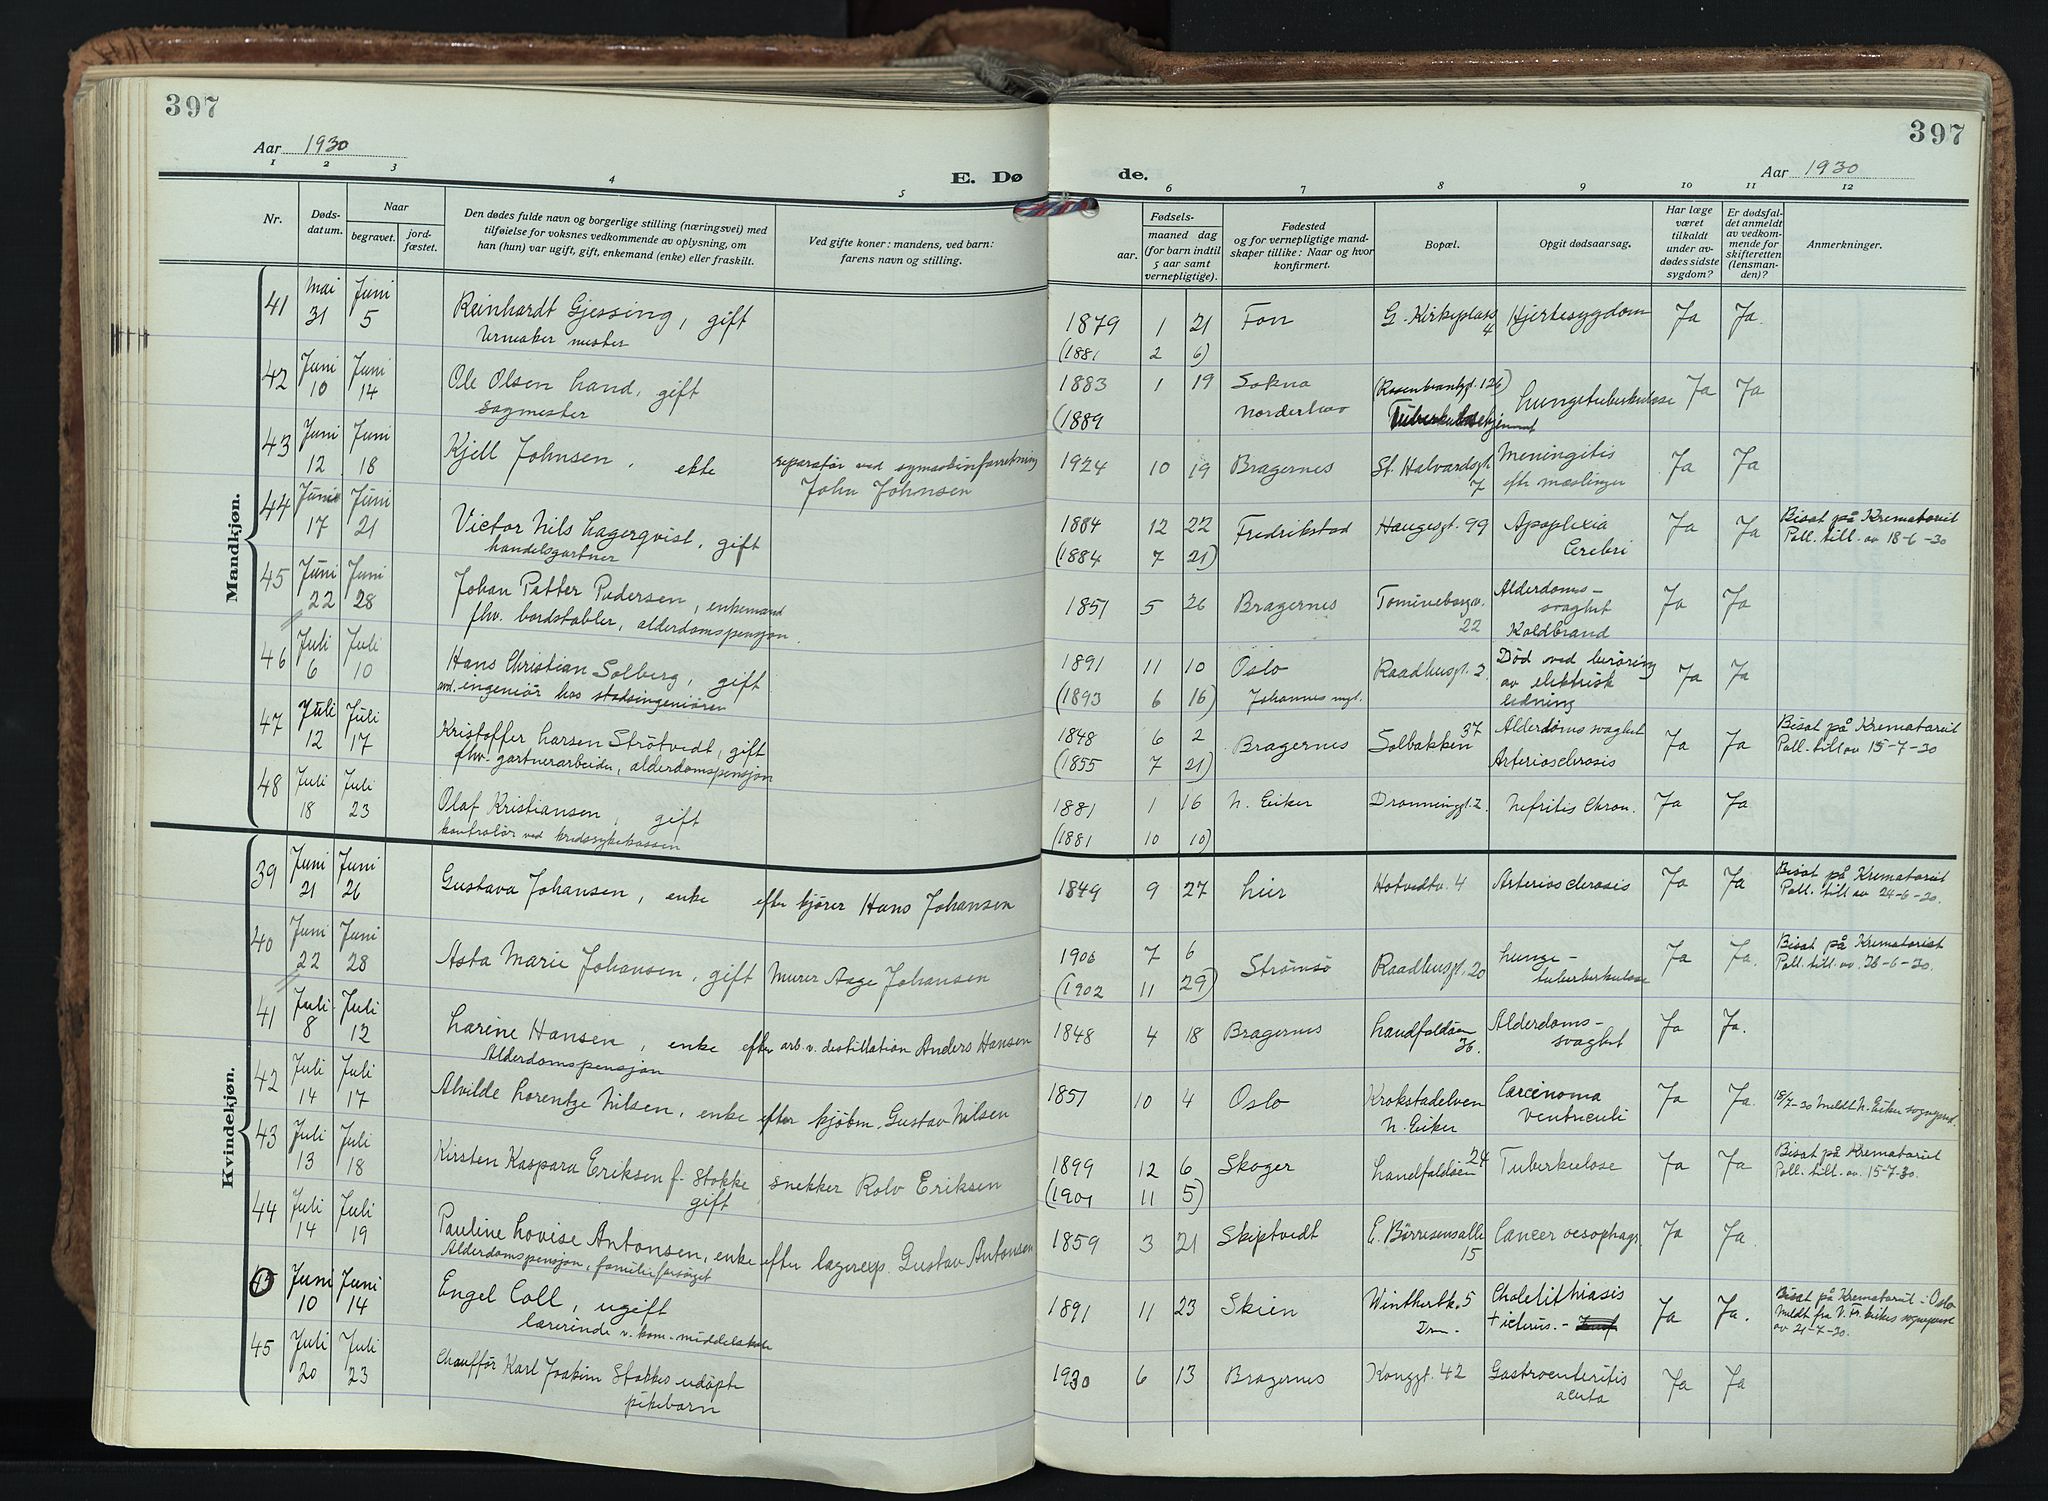 397
Aar 1930
E. Dø
1 2 3 4 5
Nr.
Døds-
datum.
Naar
begravet.
jord-
fæstet.
Den dødes fulde navn og borgerlige stilling (næringsvei) med
tilføielse for voksnes vedkommende av oplysning, om
han (hun) var ugift, gift, enkemand (enke) eller fraskilt.
Ved gifte koner: mandens, ved barn:
farens navn og stilling.
Mandkjøn.
41 Mai 31 Juni 5 Reinhardt Gjessing, gift
Urmaker mester
42 Juni 10 Juni 14 Ole Olsen Land, gift
sagmester
43 Juni 12 Juni 18 Kjell Johnsen, ekte reparatør ved symaskinforretning
John Johnsen
44 Juni 17 Juni 21 Victor Nils Lagerqvist, gift
handelsgartner
45 Juni 22 Juni 28 Johan Petter Pedersen, enkemand
fhv. bordstabler, alderdomspensjon.
46 Juli 6 Juli 10 Hans Christian Solberg, gift
avd. ingeniør hos stadsingeniøren
47 Juli 12 Juli 17 Kristoffer Larsen Strötvedt, gift
fhv. gartnerarbeider, alderdomspensjon
48 Juli 18 Juli 23 Olaf Kristiansen, gift
kontrolör ved kredssykekassen
Kvindekjøn.
39 Juni 21 Juni 26 Gustava Johansen, enke efter kjörer Hans Johansen
40 Juni 22 Juni 28 Asta Marie Johansen, gift Murer Aage Johansen
41 Juli 8 Juli 12 Larine Hansen, enke efter arb. v. destillation Anders Hansen
Alderdomspensjon
42 Juli 14 Juli 17 Alvilde Lorentze Nilsen, enke efter kjøbm. Gustav Nilsen
43 Juli 13 Juli 18 Kirsten Kaspara Eriksen f. Stokke snekker Rolv Eriksen
gift
44 Juli 14 Juli 19 Pauline Lovise Antonsen, enke efter lagerexp. Gustav Antonsen
Alderdomspensjon, familieforsörget
Juni 10 Juni 14 Engel Coll, ugift
lærerinde v. kom. middelskole
45 Juli 20 Juli 23 Chauffør Karl Joakim Stokkes udöpte
pikebarn
397
Aar 1930
de.
6 7 8 9 10 11 12
Fødsels-
aar.
maaned dag
(for barn indtil
5 aar samt
vernepligtige).
Fødested
og for vernepligtige mand-
skaper tillike: Naar og hvor
konfirmert.
Bopæl.
Opgit dødsaarsag.
Har læge
været
tilkaldt
under av-
dødes sidste
sygdom?
Er dødsfal-
det anmeldt
av vedkom-
mende for
skifteretten
(lensman-
den)?
Anmerkninger.
1879 1 21 Fon G. Kirkeplass 4 Hjertesygdom Ja Ja.
(1881 2 6)
1883 1 19 Sokna (Rosenkrantzgt. 126) Lungetuberkulose Ja Ja
(1889 Norderhov Tuberkulosehjemmet
1924 10 19 Bragernes St. Halvardsgt. 7 Meningitis Ja Ja
efter mæslinger
1884 12 22 Fredrikstad Haugesgt. 99 Apoplexia Cerebri Ja Ja Bisat på Krematoriet
(1884 7 21) Poll. till. av 18-6-30
1851 5 26 Bragernes Tomineborgv. 22 Alderdoms-
svaghet
Koldbrand Ja Ja
1891 11 10 Oslo Raadhusgt. 2. Död ved beröring
av elektrisk
ledning Ja Ja
(1893 6 16) Johannes mgt.
1848 6 2 Bragernes Solbakken 37 Alderdoms svaghet Ja Ja Bisat på Krematoriet
(1855 7 21) Arteriosclerosis Poll. till av 15-7-30
1881 1 16 N. Eiker Dronninggt. 2. Nefritis Chron. Ja Ja
(1881 10 10)
1849 9 27 Lier Hotvedtv. 4 Arteriosclerosis Ja Ja Bisat på Krematoriet
Poll. till av 24-6-30.
1906 7 6 Strømsø Raadhusgt. 20 Lunge-
tuberkulose Ja Ja. Bisat på Krematoriet
(1902 11 29) Poll. till. av. 26-6-30.
1848 4 18 Bragernes Landfaldöen 36. Alderdoms-
svaghet Ja Ja.
1851 10 4 Oslo Krokstadelven
N. Eiker Carcinoma
ventriculi Ja Ja. 18/7-30 meldt N. Eiker sogneprest.
1899 12 6 Skoger Landfaldöen 24 Tuberkulose Ja Ja Bisat på Krematoriet
(1901 11 5) Poll. till. av. 15-7-30.
1859 3 21 Skiptvedt E. Børresensalle 15 Cancer oesophag. Ja Ja
1891 11 23 Skien Wintherbk. 5
Drm. Cholelithiasis
+ icterus. Ja Ja. Bisat på Krematoriet i Oslo
Meldt fra V. Fr. kirkes sogneprest
av 21-7-30.
1930 6 13 Bragernes Konggt. 42 Gastroenteritis
acuta Ja Ja